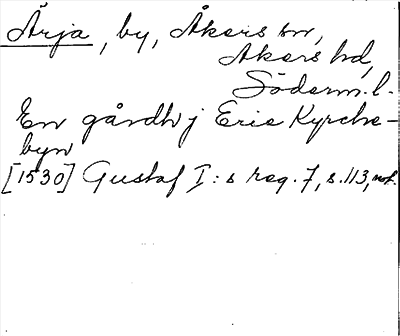 Ärja, by, Åkers sn,
Åkers hd,
Söderm. l.
En gårdh j Eric Kyrche-
byn
[1530] Gustaf I:s reg. 7, s. 113, not.